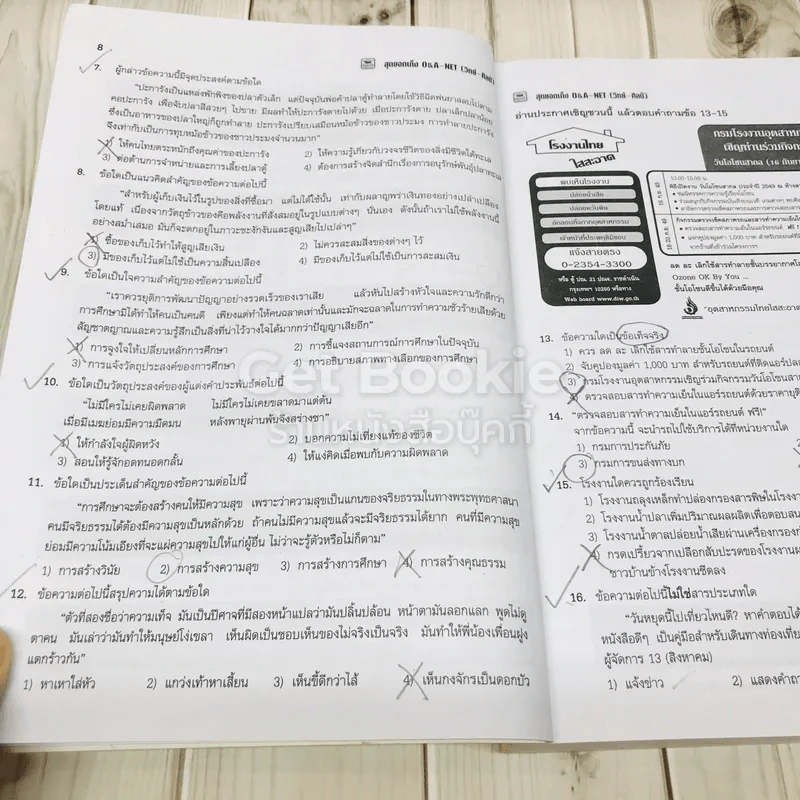 8
สุดยอดเก็ง O&A-NET (วิทย์-ศิลป์)
7. ผู้กล่าวข้อความนี้มีจุดประสงค์ตามข้อใด
"ปะการังเป็นแหล่งพักพิงของปลาตัวเล็ก แต่ปัจจุบันพ่อค้าปลาตู้ทำลายโดยใช้วิธีฉีดพ่นยาสลบไปตาม
คอปะการัง เพื่อจับปลาสีสวยๆ ไปขาย มีผลทำให้ปะการังตายไปด้วย เมื่อปะการังตาย ปลาเล็กปลาน้อย
ซึ่งเป็นอาหารของปลาใหญ่ก็ถูกทำลาย ปะการังเปรียบเสมือนหม้อข้าวของชาวประมง การทำลายปะการัง
จึงเท่ากับเป็นการทุบหม้อข้าวของชาวประมงจำนวนมาก"
1) ให้คนไทยตระหนักถึงคุณค่าของปะการัง 2) ให้ความรู้เกี่ยวกับวงจรชีวิตของสิ่งมีชีวิตใต้ทะเล
3) ต่อต้านการจำหน่ายและการเลี้ยงปลาตู้ 4) ต้องการสร้างจิตสำนึกเรื่องการอนุรักษ์พันธุ์ปลาทะเล
8. ข้อใดเป็นแนวคิดสำคัญของข้อความต่อไปนี้
"สำหรับผู้เก็บเงินไว้ในรูปของสิ่งที่ซื้อมา แต่ไม่ได้ใช้นั้น เท่ากับผลาญพร่าเงินทองอย่างเปล่าเปลือง
โดยแท้ เนื่องจากวัตถุข้าวของคือพลังงานที่สั่งสมอยู่ในรูปแบบต่างๆ นั่นเอง ดังนั้นถ้าเราไม่ใช้พลังงานนี้
อย่างสม่ำเสมอ มันก็จะตกอยู่ในภาวะชะงักงันและสูญเสียไปเปล่าๆ"
1) ซื้อของเก็บไว้ทำให้สูญเสียเงิน 2) ไม่ควรสะสมสิ่งของต่างๆ ไว้
3) มีของเก็บไว้แต่ไม่ใช้เป็นความสิ้นเปลือง 4) มีของเก็บไว้แต่ไม่ใช้เป็นการสะสมเงิน
9. ข้อใดเป็นใจความสำคัญของข้อความต่อไปนี้
"เราควรยุติการพัฒนาปัญญาอย่างรวดเร็วของเราเสีย แล้วหันไปสร้างหัวใจและความรักดีกว่า
การศึกษามิได้ทำให้คนเป็นคนดี เพียงแต่ทำให้คนฉลาดเท่านั้นและมักจะฉลาดในการทำความชั่วร้ายเสียด้วย
สัญชาตญาณและความรู้สึกเป็นสิ่งที่น่าไว้วางใจได้มากกว่าปัญญาเสียอีก"
1) การจูงใจให้เปลี่ยนหลักการศึกษา 2) การชี้แจงสถานการณ์การศึกษาในปัจจุบัน
3) การแจ้งวัตถุประสงค์ของการศึกษา 4) การอธิบายสภาพทางเลือกของการศึกษา
10. ข้อใดเป็นวัตถุประสงค์ของผู้แต่งคำประพันธ์ต่อไปนี้
"ไม่มีใครไม่เคยผิดพลาด ไม่มีใครไม่เคยขลาดมาแต่ต้น
เมื่อมีเมฆย่อมมีความมืดมน หลังพายุผ่านพ้นจึงสร่างซา"
1) ให้กำลังใจผู้ผิดหวัง 2) บอกความไม่เที่ยงแท้ของชีวิต
3) สอนให้รู้จักอดทนอดกลั้น 4) ให้แง่คิดเมื่อพบกับความผิดพลาด
11. ข้อใดเป็นประเด็นสำคัญของข้อความต่อไปนี้
"การศึกษาจะต้องสร้างคนให้มีความสุข เพราะว่าความสุขเป็นแกนของจริยธรรมในทางพระพุทธศาสนา
คนมีจริยธรรมได้ต้องมีความสุขเป็นหลักด้วย ถ้าคนไม่มีความสุขแล้วจะมีจริยธรรมได้ยาก คนที่มีความสุข
ย่อมมีความโน้มเอียงที่จะแผ่ความสุขไปให้แก่ผู้อื่น ไม่ว่าจะรู้ตัวหรือไม่ก็ตาม"
1) การสร้างวินัย 2) การสร้างความสุข 3) การสร้างการศึกษา 4) การสร้างคุณธรรม
12. ข้อความต่อไปนี้สรุปความได้ตามข้อใด
"ตัวที่สองชื่อว่าความเท็จ มันเป็นปีศาจที่มีสองหน้าแปลว่ามันปลิ้นปล้อน หน้าตามันลอกแลก พูดไม่ดู
ตาคน มันเล่าว่ามันทำให้มนุษย์โง่เขลา เห็นผิดเป็นชอบเห็นของไม่จริงเป็นจริง มันทำให้พี่น้องเพื่อนฝูง
แตกร้าวกัน"
1) หาเหาใส่หัว 2) แกว่งเท้าหาเสี้ยน 3) เห็นขี้ดีกว่าไส้ 4) เห็นกงจักรเป็นดอกบัว
สุดยอดเก็ง O&A-NET (วิทย์-ศิลป์)
อ่านประกาศเชิญชวนนี้ แล้วตอบคำถามข้อ 13-15
โรงงานไทย
ใสสะอาด
พบเห็นโรงงาน
ปล่อยน้ำเสีย
ปล่อยควันพิษ
ลักลอบทิ้งกากอุตสาหกรรม
เจ้าหน้าที่ประพฤติมิชอบ
แจ้งสายตรง
0-2354-3300
หรือ ตู้ ปณ. 21 ปณฝ. ราชดำเนิน
กรุงเทพฯ 10200 หรือทาง
Web board www.diw.go.th
กรมโรงงานอุตสาห
เชิญท่านร่วมกิจกร
วันโอโซนสากล (16 กันยา
ลด ละ เลิกใช้สารทำลายชั้นบรรยากาศโล
Ozone OK By You ...
ชั้นโอโซนดีขึ้นได้ด้วยมือคุณ
"อุตสาหกรรมไทยใสสะอา
13. ข้อความใดเป็นข้อเท็จจริง
1) ควร ลด ละ เลิกใช้สารทำลายชั้นโอโซนในรถยนต์
2) จับคู่ปองมูลค่า 1,000 บาท สำหรับรถยนต์ที่ติดแอร์ปลอด
3) กรมโรงงานอุตสาหกรรมเชิญร่วมกิจกรรมวันโอโซนสาก
4) ตรวจสอบสารทำความเย็นในแอร์รถยนต์ด้วยราคายุติ
14. "ตรวจสอบสารทำความเย็นในแอร์รถยนต์ ฟรี!"
จากข้อความนี้ จะนำรถไปใช้บริการได้ที่หน่วยงานใด
1) กรมการประกันภัย
3) กรมการขนส่งทางบก
15. โรงงานใดควรถูกร้องเรียน
1) โรงงานถลุงเหล็กทำปล่องกรองสารพิษในโรงงา
2) โรงงานน้ำปลาเพิ่มปริมาณผลผลิตเพื่อตอบสน
3) โรงงานน้ำตาลปล่อยน้ำเสียผ่านเครื่องกรองก่
4) กรดเปรี้ยวจากเปลือกสับปะรดของโรงงานผ
ชาวบ้านข้างโรงงานซีดลง
16. ข้อความต่อไปนี้ไม่ใช่สารประเภทใด
"วันหยุดนี้ไปเที่ยวไหนดี? หาคำตอบได้
หนังสือดีๆ เป็นคู่มือสำหรับเดินทางท่องเที่ย
ผู้จัดการ 13 (สิงหาคม)
1) แจ้งข่าว 2) แสดงคำถา
Get Bookie
ร้านหนังสือบุ๊คกี้